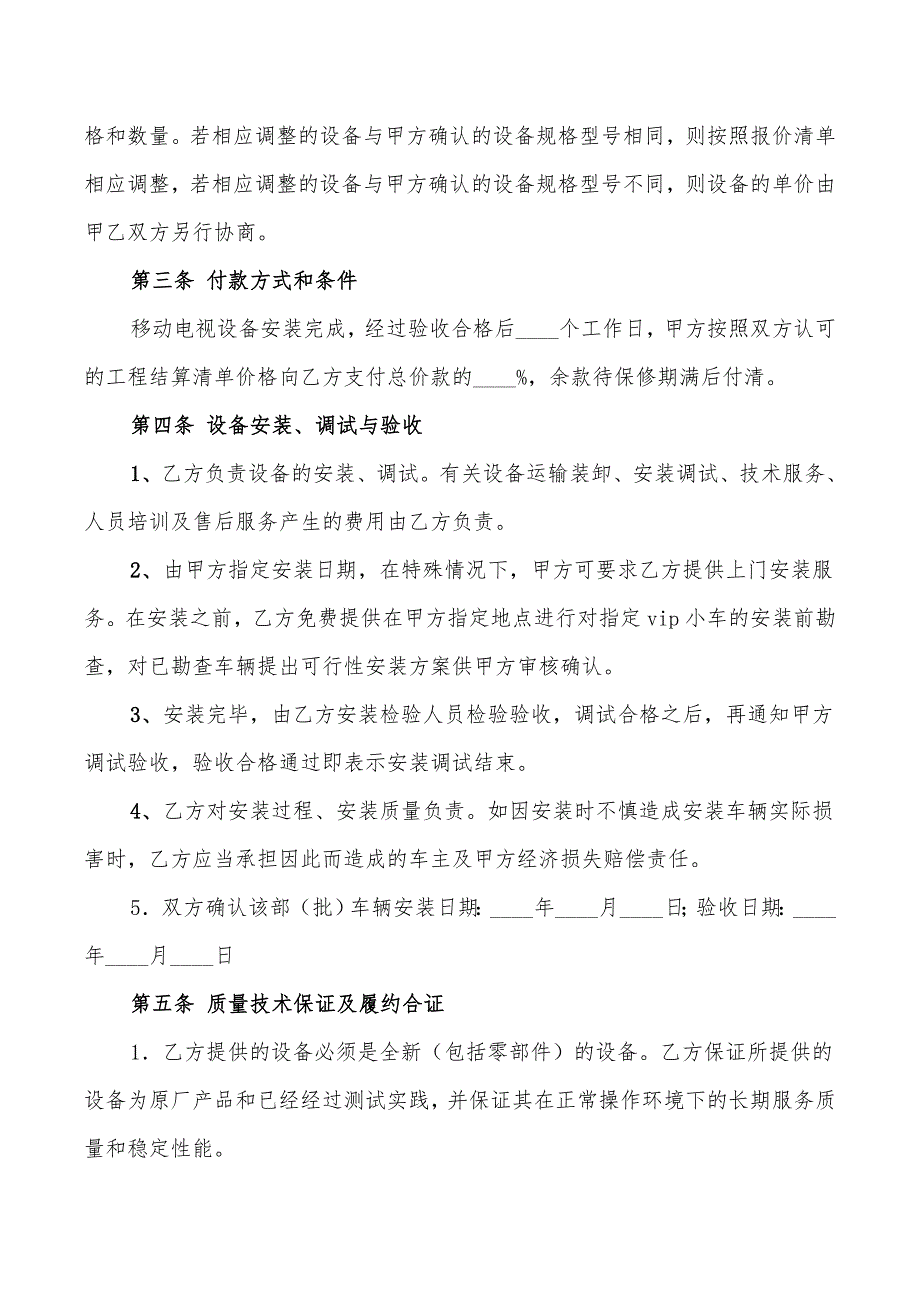 格和数量。若相应调整的设备与甲方确认的设备规格型号相同，则按照报价清单
相应调整，若相应调整的设备与甲方确认的设备规格型号不同，则设备的单价由
甲乙双方另行协商。
第三条 付款方式和条件
移动电视设备安装完成，经过验收合格后____个工作日，甲方按照双方认可
的工程结算清单价格向乙方支付总价款的____%，余款待保修期满后付清。
第四条 设备安装、调试与验收
1、乙方负责设备的安装、调试。有关设备运输装卸、安装调试、技术服务、
人员培训及售后服务产生的费用由乙方负责。
2、由甲方指定安装日期，在特殊情况下，甲方可要求乙方提供上门安装服
务。在安装之前，乙方免费提供在甲方指定地点进行对指定 vip 小车的安装前勘
查，对已勘查车辆提出可行性安装方案供甲方审核确认。
3、安装完毕，由乙方安装检验人员检验验收，调试合格之后，再通知甲方
调试验收，验收合格通过即表示安装调试结束。
4、乙方对安装过程、安装质量负责。如因安装时不慎造成安装车辆实际损
害时，乙方应当承担因此而造成的车主及甲方经济损失赔偿责任。
5．双方确认该部（批）车辆安装日期：____年____月____日；验收日期：____
年____月____日
第五条 质量技术保证及履约合证
1．乙方提供的设备必须是全新（包括零部件）的设备。乙方保证所提供的
设备为原厂产品和已经经过测试实践，并保证其在正常操作环境下的长期服务质
量和稳定性能。